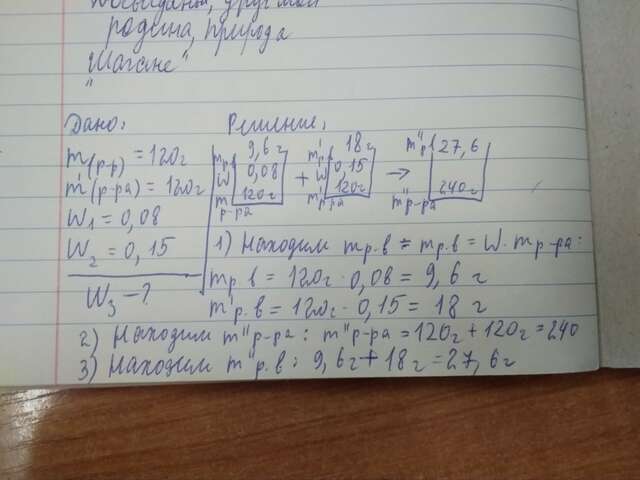 друг мой
родина, природа
"Шагане"
Дано: Решение:
m(р-р) = 120г
m'(р-ра) = 120г
W1 = 0,08
W2 = 0,15
W3 - ?
mр 9,6г
W 0,08
m р-ра 120г
+
m'р 18г
W 0,15
m'р-ра 120г
→
m"р 27,6
m"р-ра 240г
1) Находим mр.в = mр.в = W · mр-ра:
mр.в = 120г · 0,08 = 9,6 г
m'р.в = 120г · 0,15 = 18 г
2) Находим m"р-ра : m"р-ра = 120г + 120г = 240
3) Находим m"р.в : 9,6г + 18г = 27,6г